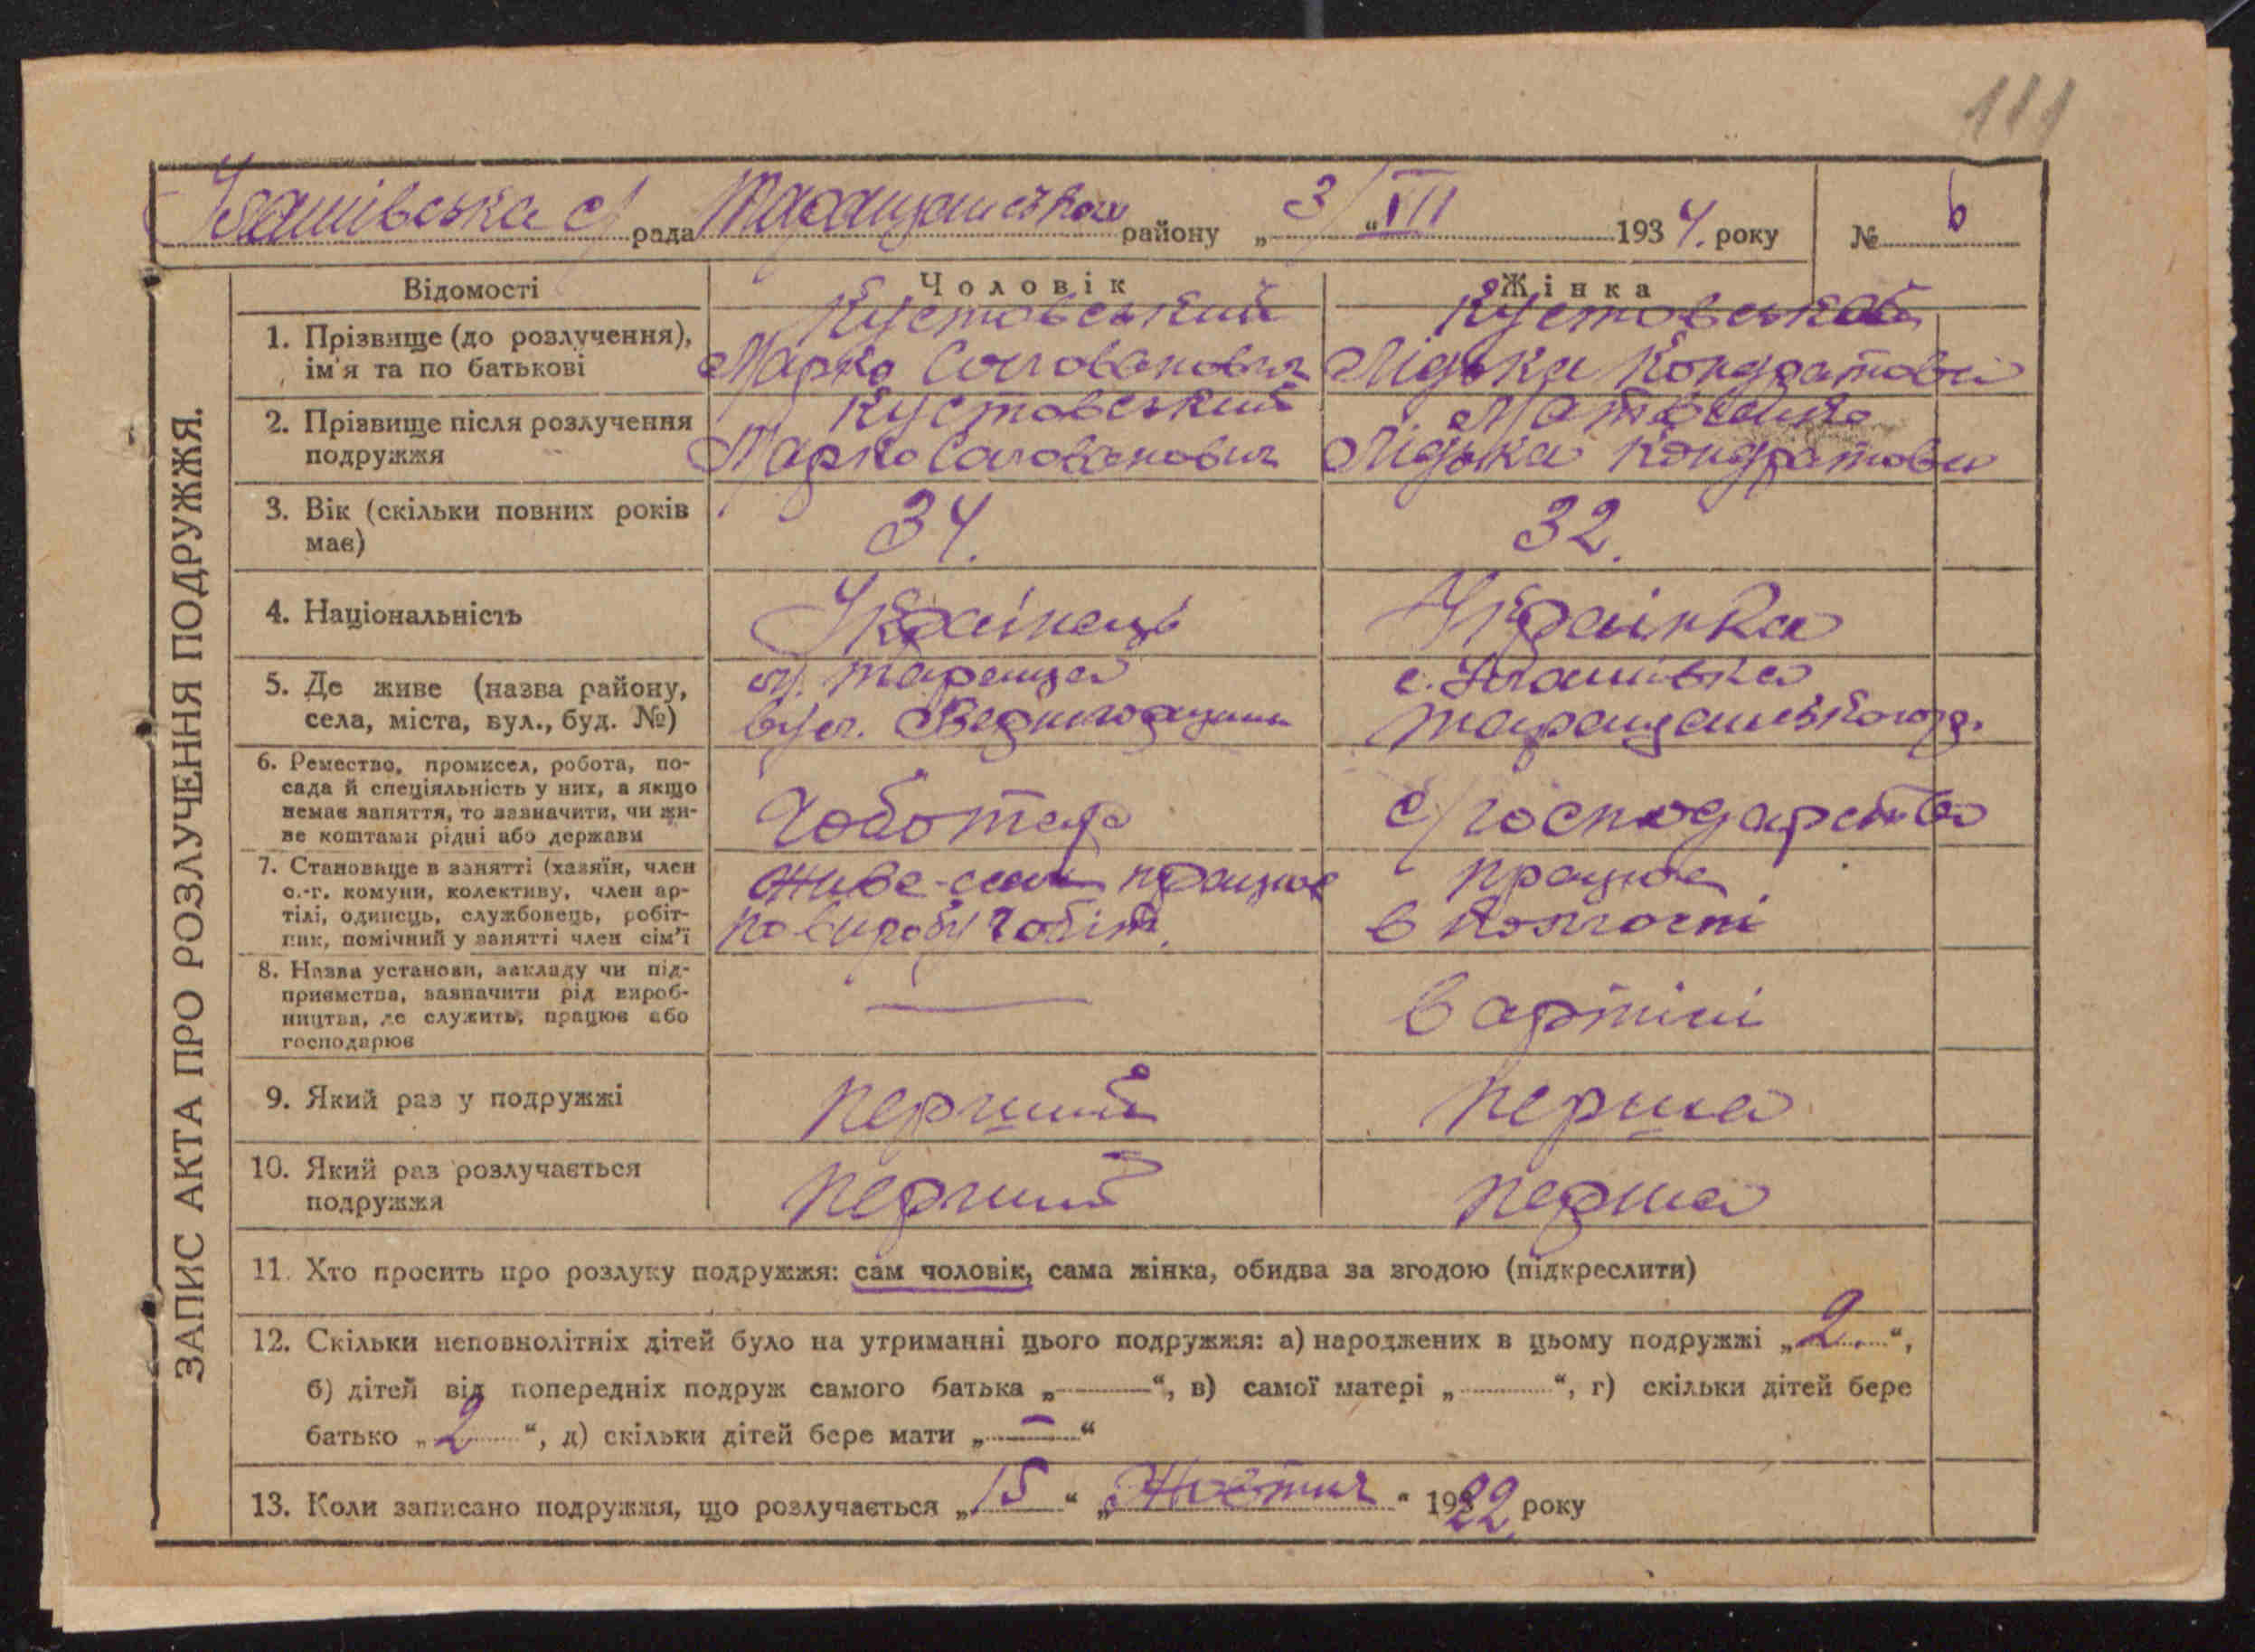 111
рада Таращанського району „3/“ VII 1934. року № 6
ЗАПИС АКТА ПРО РОЗЛУЧЕННЯ ПОДРУЖЖЯ.
Відомості Чоловік Жінка
1. Прізвище (до розлучення), ім'я та по батькові
Кустовський
Марко
Кустовська
Лідька Кондратови
2. Прізвище після розлучення подружжя
Кустовський
Марко
Лідька Кондратови
3. Вік (скільки повних років має)
34.
32.
4. Національність
Українець
Українка
5. Де живе (назва району, села, міста, вул., буд. №)
м. Тараща
вул.
с.
Таращанського р.
6. Ремество, промисел, робота, посада й спеціяльність у них, а якщо немає заняття, то зазначити, чи живе коштами рідні або держави
Чоботар
с/господарство
7. Становище в занятті (хазяїн, член с.-г. комуни, колективу, член артілі, одинець, службовець, робітник, помічний у занятті член сім'ї
живе сам працює
по виробу чобіт.
працює
в колгоспі
8. Назва установи, закладу чи підприємства, зазначити рід виробництва, де служить, працює або господарює
—
в артілі
9. Який раз у подружжі
перший
перша
10. Який раз розлучається подружжя
перший
перша
11. Хто просить про розлуку подружжя: сам чоловік, сама жінка, обидва за згодою (підкреслити)
12. Скільки неповнолітніх дітей було на утриманні цього подружжя: а) народжених в цьому подружжі „2.“,
б) дітей від попередніх подруж самого батька „—“, в) самої матері „—“, г) скільки дітей бере
батько „2“, д) скільки дітей бере мати „—“
13. Коли записано подружжя, що розлучається „15“ „Жовтня“ 1922 року